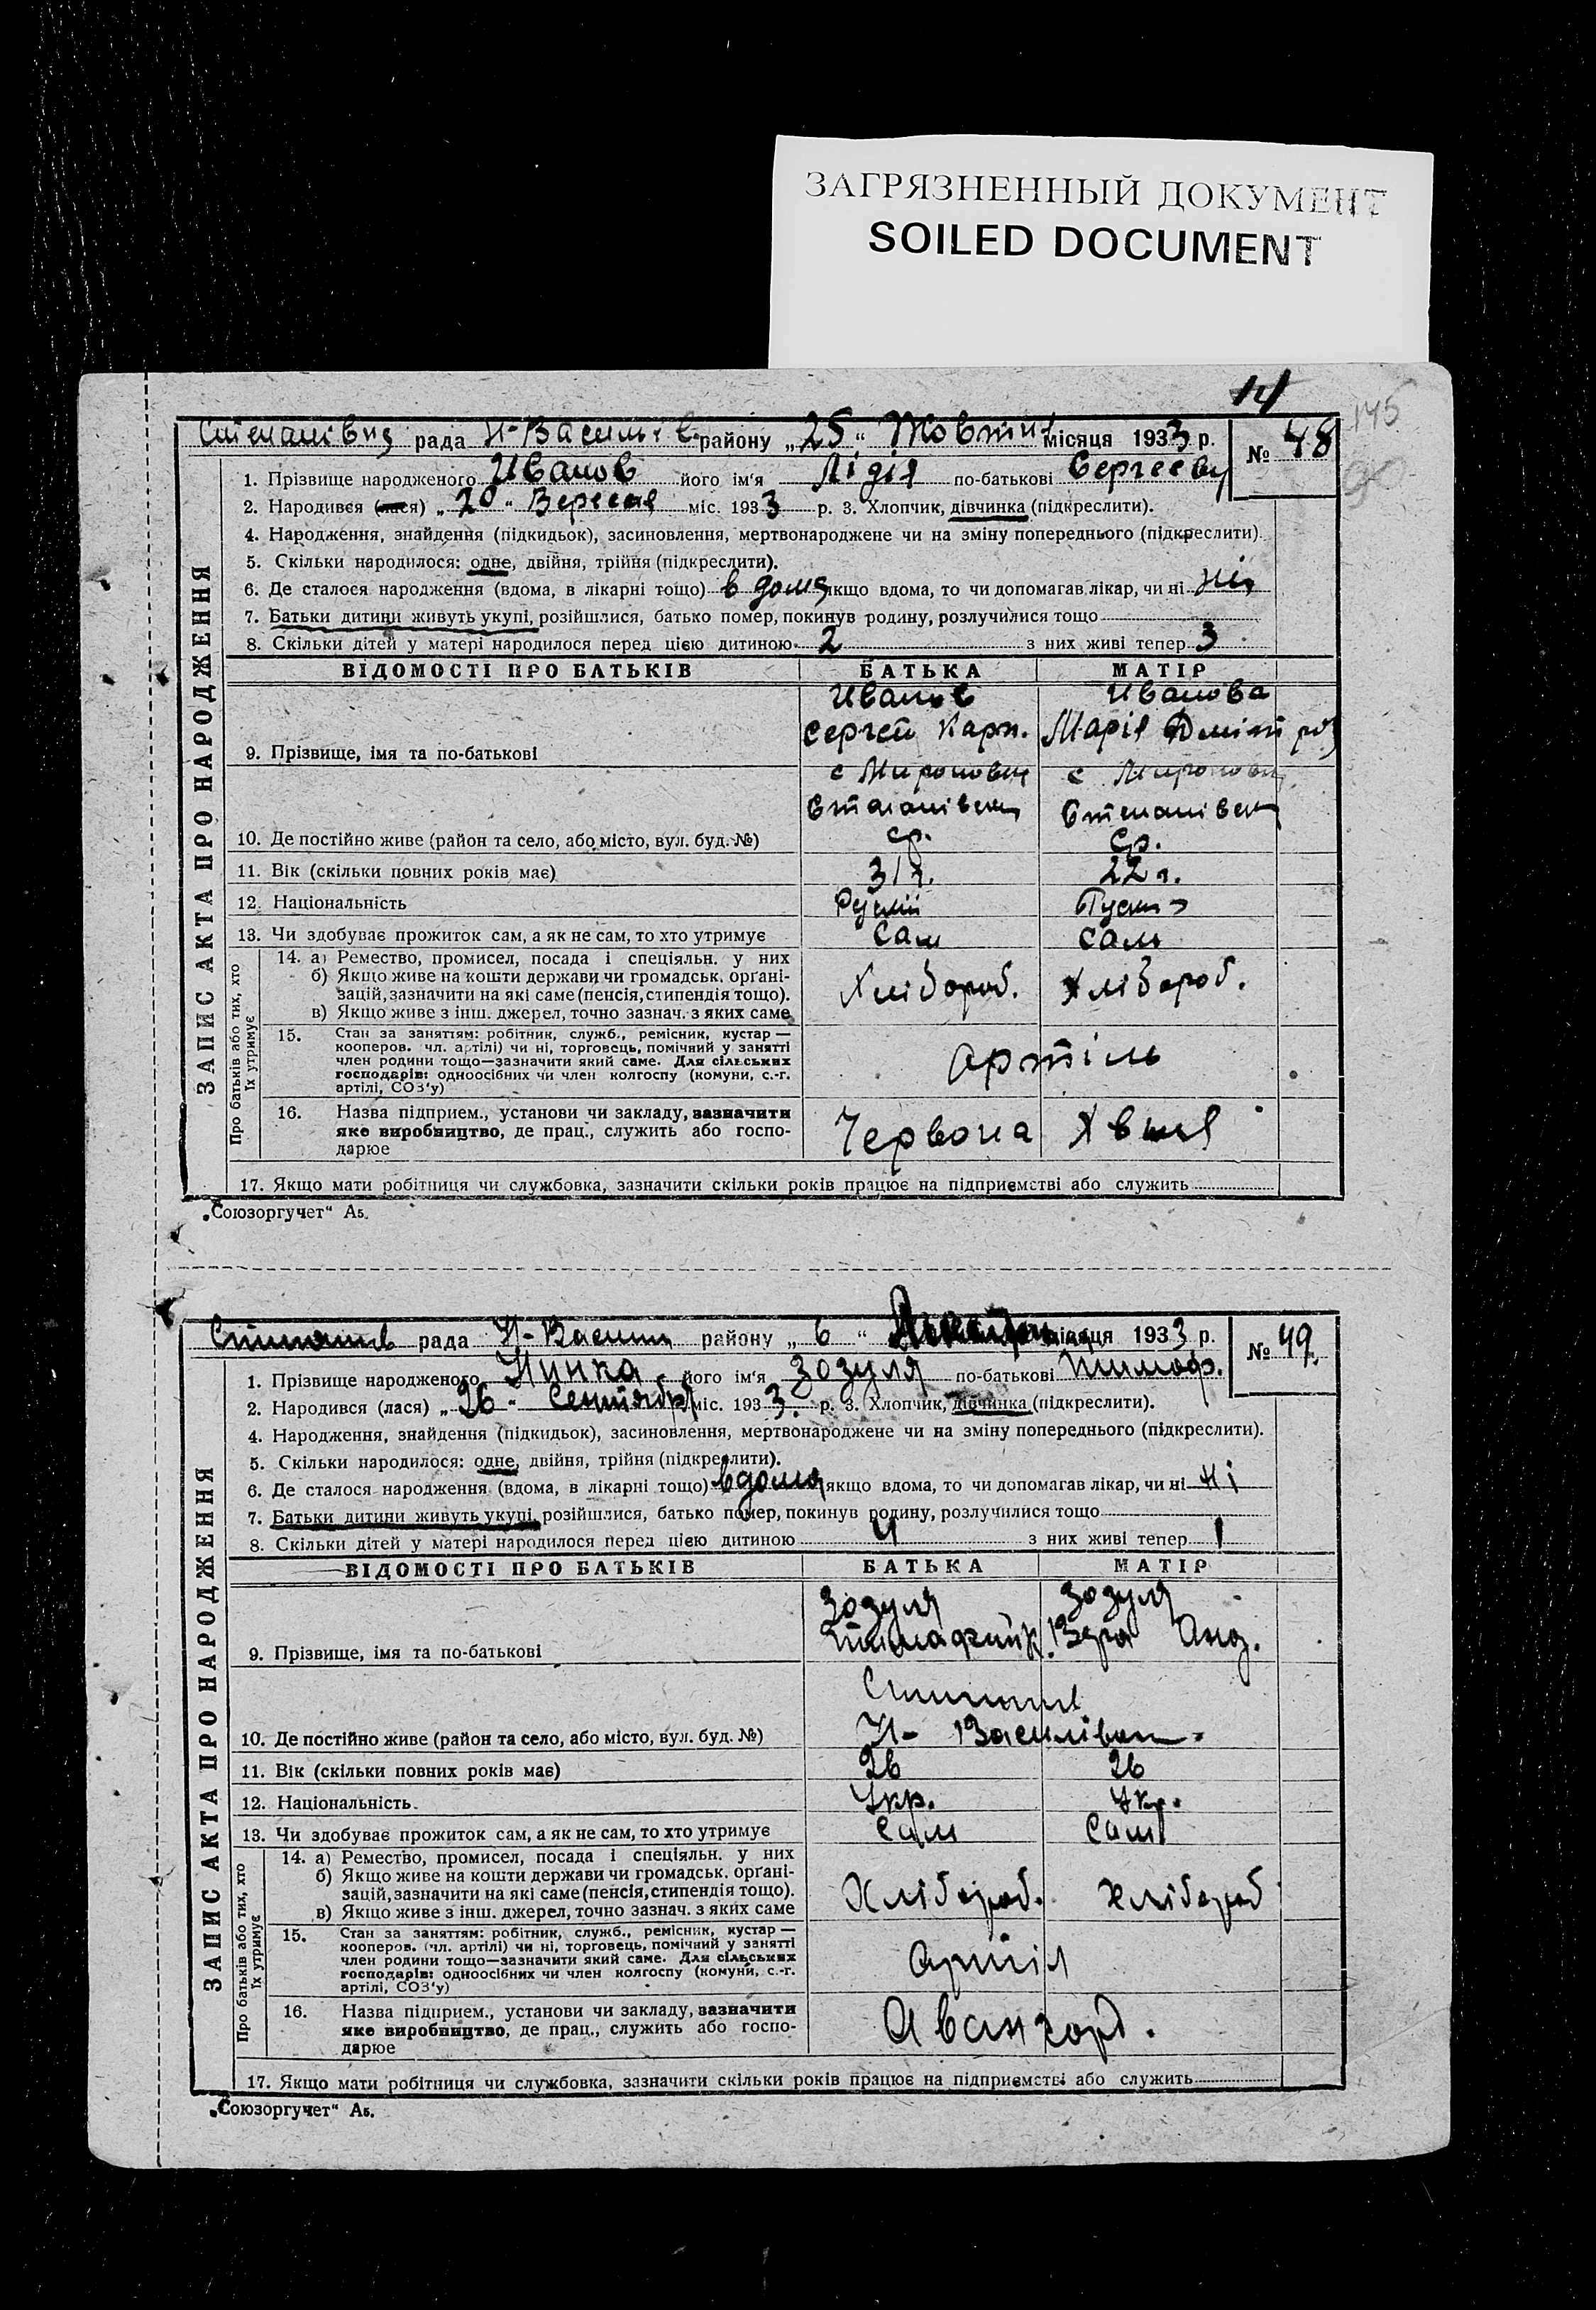 ЗАГРЯЗНЕННЫЙ ДОКУМЕНТ
SOILED DOCUMENT
14
145
90
рада Н-Василів району „25“ Жовтня місяця 1933 р. № 48
1. Прізвище народженого Иванов його ім'я Лідія по-батькові Сергеевн
2. Народився (лася) „20“ Вересня міс. 1933 р. 3. Хлопчик, дівчинка (підкреслити).
4. Народження, знайдення (підкидьок), засиновлення, мертвонароджене чи на зміну попереднього (підкреслити).
5. Скільки народилося: одне, двійня, трійня (підкреслити).
6. Де сталося народження (вдома, в лікарні тощо) в дома якщо вдома, то чи допомагав лікар, чи ні ні
7. Батьки дитини живуть укупі, розійшлися, батько помер, покинув родину, розлучилися тощо
8. Скільки дітей у матері народилося перед цією дитиною 2 з них живі тепер 3
ВІДОМОСТІ ПРО БАТЬКІВ БАТЬКА МАТІР
Иванов Иванова
Сергей Карп. Марія Дмітр
9. Прізвище, імя та по-батькові
с с
10. Де постійно живе (район та село, або місто, вул. буд. №) ср. ср.
11. Вік (скільки повних років має) 31 г. 22 г.
12. Національність Руский
13. Чи здобуває прожиток сам, а як не сам, то хто утримує сам сам
14. а) Ремество, промисел, посада і спеціяльн. у них
б) Якщо живе на кошти держави чи громадськ. органі-
зацій, зазначити на які саме (пенсія, стипендія тощо).
в) Якщо живе з інш. джерел, точно зазнач. з яких саме
Хлібороб. Хлібороб.
15. Стан за заняттям: робітник, служб., ремісник, кустар —
кооперов. чл. артілі) чи ні, торговець, помічний у занятті
член родини тощо—зазначити який саме. Для сільських
господарів: одноосібних чи член колгоспу (комуни, с.-г.
артілі, СОЗ'у)
артіль
16. Назва підприєм., установи чи закладу, зазначити
яке виробництво, де прац., служить або госпо-
дарює
Червона Хвиля
17. Якщо мати робітниця чи службовка, зазначити скільки років працює на підприємстві або служить
ЗАПИС АКТА ПРО НАРОДЖЕННЯ
Про батьків або тих, хто
їх утримує
„Союзоргучет“ А5.
рада Н-Васили району „6“ місяця 1933 р. № 49
1. Прізвище народженого Нинка його ім'я Зозуля по-батькові Тимоф.
2. Народився (лася) „26“ Сентября міс. 1933. р. 3. Хлопчик, дівчинка (підкреслити).
4. Народження, знайдення (підкидьок), засиновлення, мертвонароджене чи на зміну попереднього (підкреслити).
5. Скільки народилося: одне, двійня, трійня (підкреслити).
6. Де сталося народження (вдома, в лікарні тощо) вдома якщо вдома, то чи допомагав лікар, чи ні ні
7. Батьки дитини живуть укупі, розійшлися, батько помер, покинув родину, розлучилися тощо
8. Скільки дітей у матері народилося перед цією дитиною 4 з них живі тепер 1
ВІДОМОСТІ ПРО БАТЬКІВ БАТЬКА МАТІР
Зозуля Зозуля
Вера Анд.
9. Прізвище, імя та по-батькові
10. Де постійно живе (район та село, або місто, вул. буд. №) Н-
11. Вік (скільки повних років має) 26 26
12. Національність Укр. Укр.
13. Чи здобуває прожиток сам, а як не сам, то хто утримує Сам Сам
14. а) Ремество, промисел, посада і спеціяльн. у них
б) Якщо живе на кошти держави чи громадськ. органі-
зацій, зазначити на які саме (пенсія, стипендія тощо).
в) Якщо живе з інш. джерел, точно зазнач. з яких саме
Хлібороб. Хлібороб
15. Стан за заняттям: робітник, служб., ремісник, кустар —
кооперов. (чл. артілі) чи ні, торговець, помічний у занятті
член родини тощо—зазначити який саме. Для сільських
господарів: одноосібних чи член колгоспу (комуни, с.-г.
артілі, СОЗ'у)
Артіл
16. Назва підприєм., установи чи закладу, зазначити
яке виробництво, де прац., служить або госпо-
дарює
Авангард.
17. Якщо мати робітниця чи службовка, зазначити скільки років працює на підприємстві або служить
ЗАПИС АКТА ПРО НАРОДЖЕННЯ
Про батьків або тих, хто
їх утримує
„Союзоргучет“ А5.